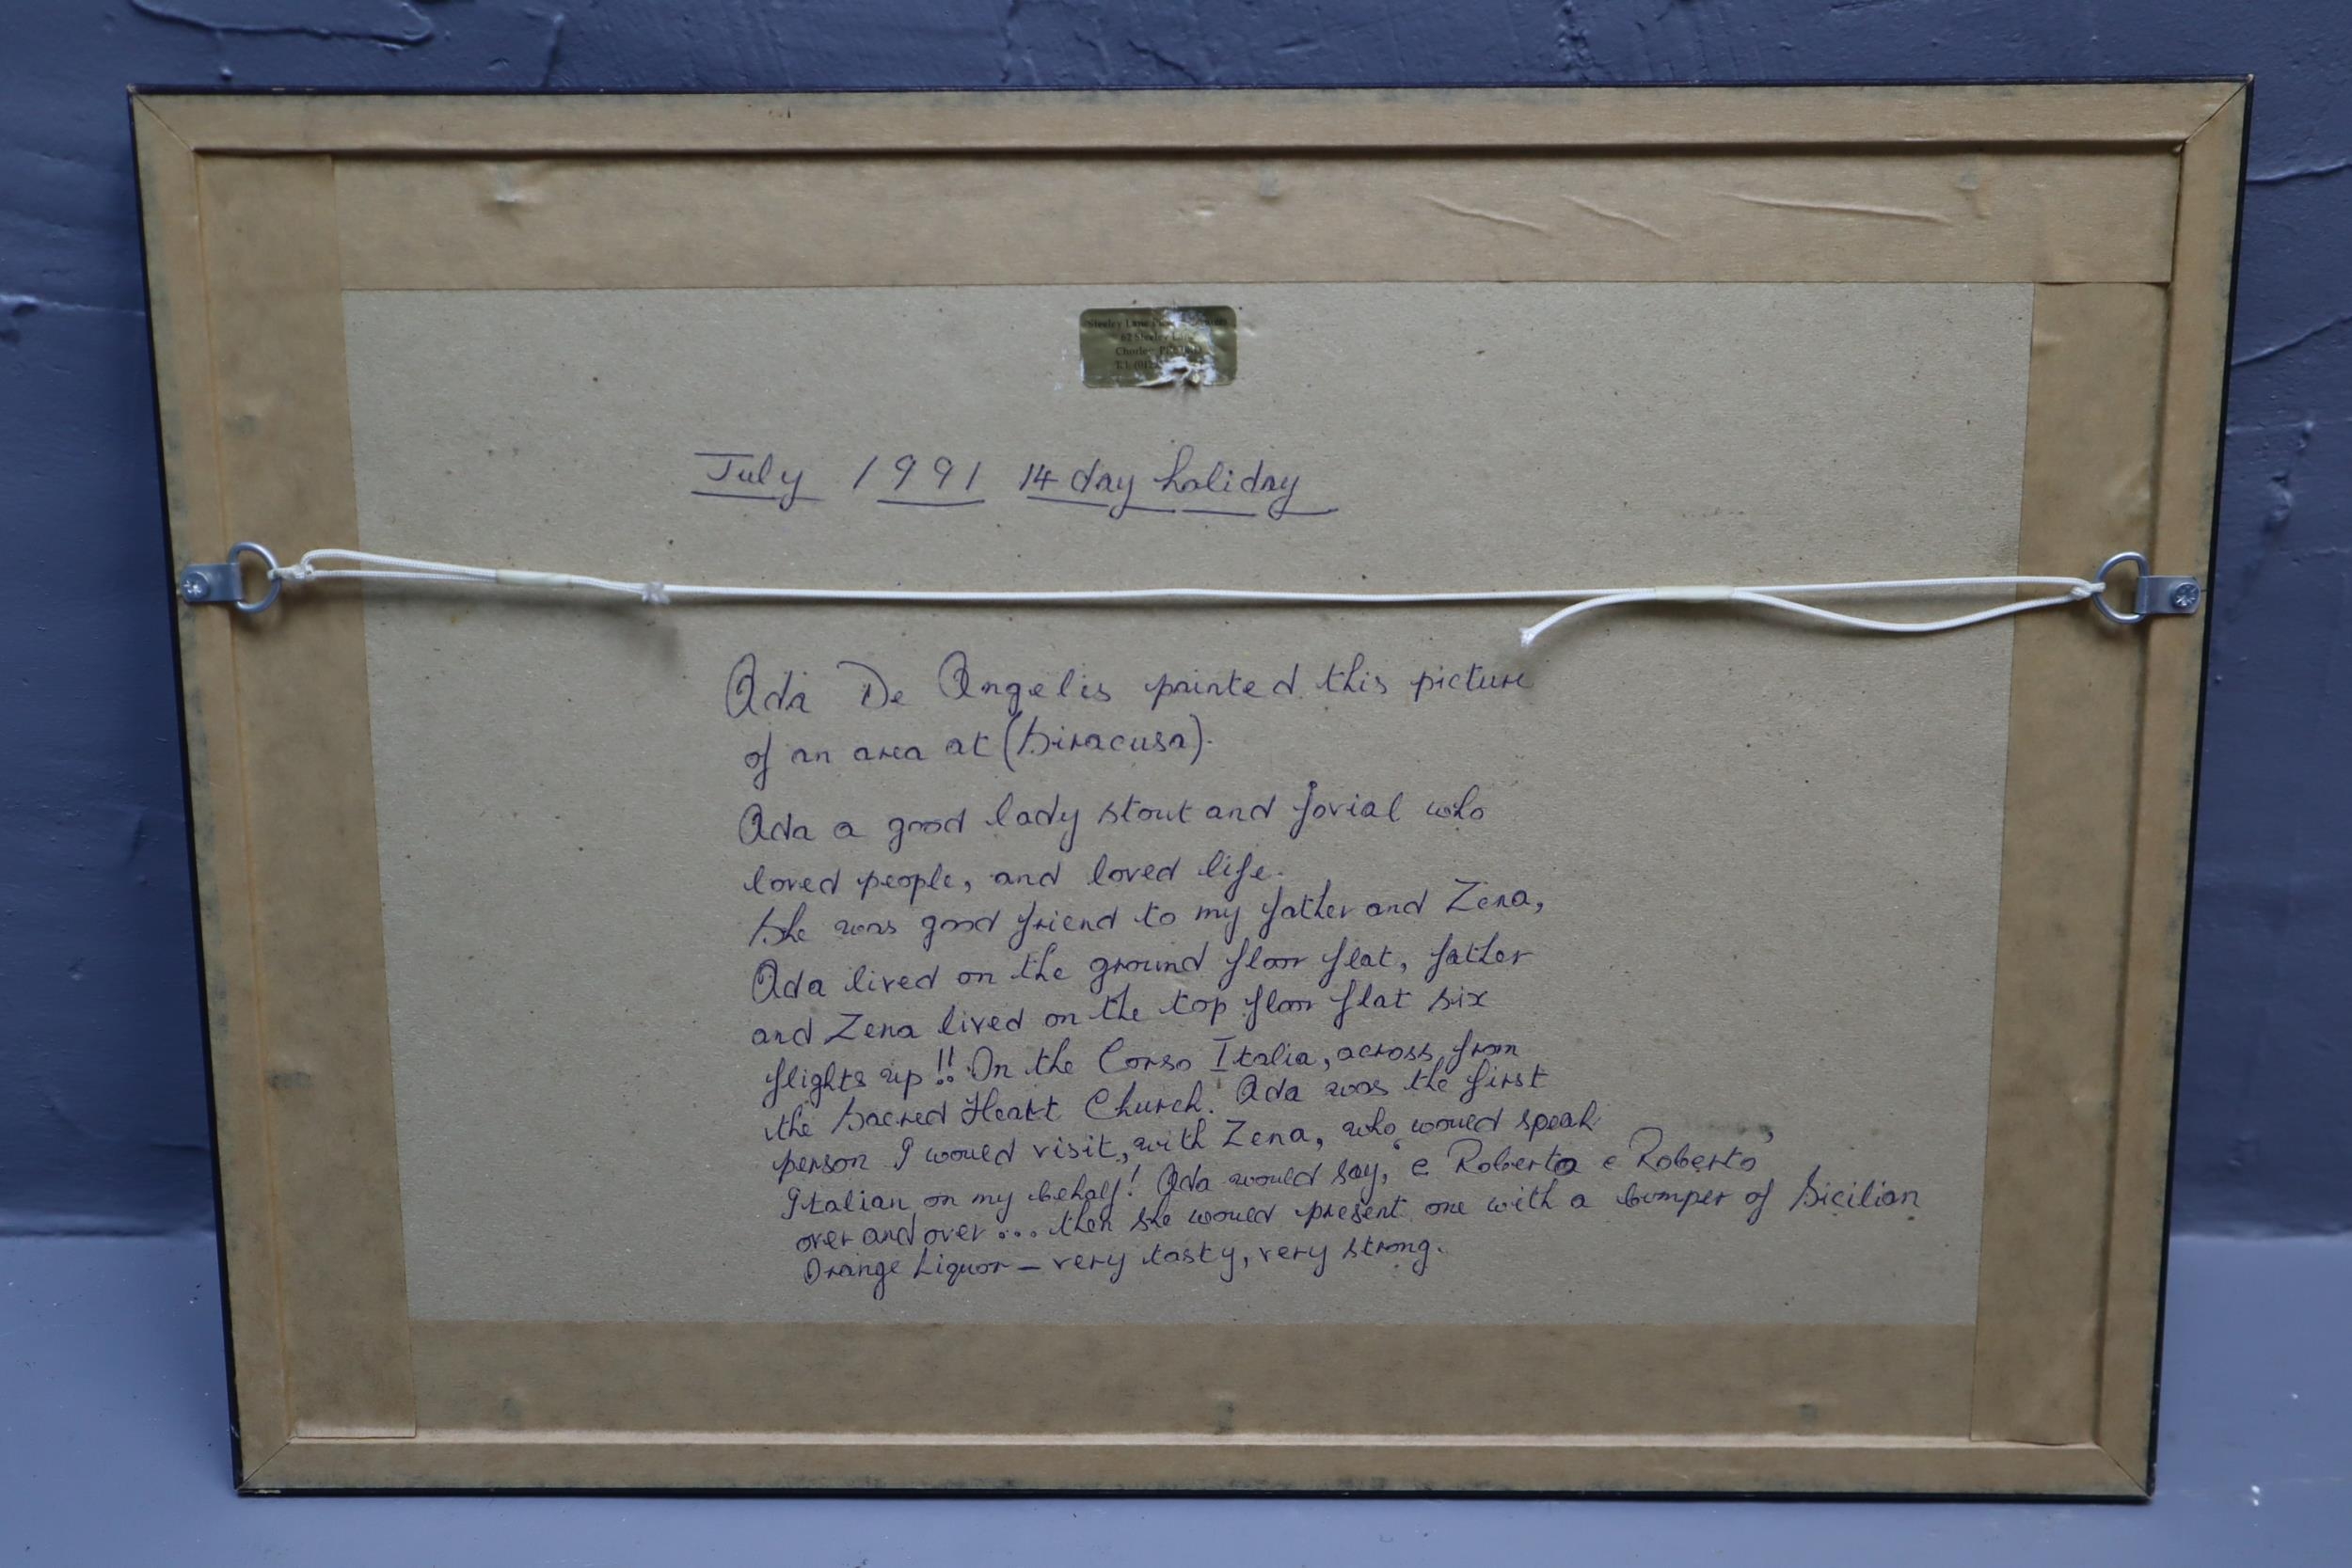 Steeley Lane
62 Steeley Lane
Chorley
July 1991 14 day holiday
Ada De Angelis painted this picture
of an area at (Siracusa).
Ada a good lady stout and jovial who
loved people, and loved life.
She was good friend to my father and Zena,
Ada lived on the ground floor flat, father
and Zena lived on the top floor flat six
flights up!! On the Corso Italia, across from
the Sacred Heart Church. Ada was the first
person I would visit, with Zena, who would speak
Italian on my behalf! Ada would say, "e Roberto e Roberto"
over and over... then she would present one with a bumper of Sicilian
Orange Liquor - very tasty, very strong.